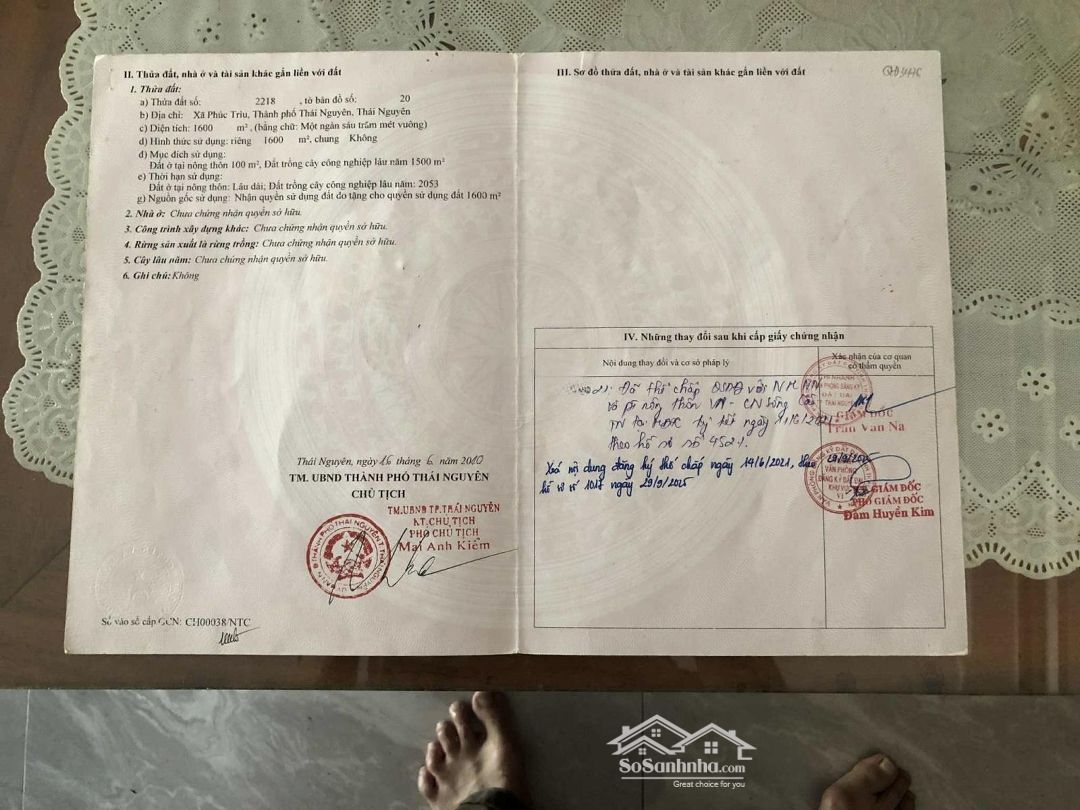 II. Thửa đất, nhà ở và tài sản khác gắn liền với đất
1. Thửa đất:
a) Thửa đất số: 2218 , tờ bản đồ số: 20
b) Địa chỉ: Xã Phúc Trìu, Thành phố Thái Nguyên, Thái Nguyên
c) Diện tích: 1600 m², (bằng chữ: Một ngàn sáu trăm mét vuông)
d) Hình thức sử dụng: riêng 1600 m², chung Không
đ) Mục đích sử dụng:
Đất ở tại nông thôn 100 m², Đất trồng cây công nghiệp lâu năm 1500 m²
e) Thời hạn sử dụng:
Đất ở tại nông thôn: Lâu dài; Đất trồng cây công nghiệp lâu năm: 2053
g) Nguồn gốc sử dụng: Nhận quyền sử dụng đất do tặng cho quyền sử dụng đất 1600 m²
2. Nhà ở: Chưa chứng nhận quyền sở hữu.
3. Công trình xây dựng khác: Chưa chứng nhận quyền sở hữu.
4. Rừng sản xuất là rừng trồng: Chưa chứng nhận quyền sở hữu.
5. Cây lâu năm: Chưa chứng nhận quyền sở hữu.
6. Ghi chú: Không
Thái Nguyên, ngày 16 tháng 6 năm 2010
TM. UBND THÀNH PHỐ THÁI NGUYÊN
CHỦ TỊCH
TM.UBND TP.THÁI NGUYÊN
KT.CHỦ TỊCH
PHÓ CHỦ TỊCH
Mai Anh Kiêm
Số vào sổ cấp GCN: CH00038/NTC
III. Sơ đồ thửa đất, nhà ở và tài sản khác gắn liền với đất
IV. Những thay đổi sau khi cấp giấy chứng nhận
Nội dung thay đổi và cơ sở pháp lý
Xác nhận của cơ quan
có thẩm quyền
Đã thế chấp QSDĐ với NH NN
và pt nông thôn VN - CN Sông
ngày
theo hồ sơ số
GIÁM ĐỐC
Trần Văn Na
Xoá nội dung đăng ký thế chấp ngày 14/6/2021, theo
hồ sơ số ngày 29/9/2025
29/9/2025
VĂN PHÒNG
ĐĂNG KÝ ĐẤT ĐAI
KHU VỰC
KT. GIÁM ĐỐC
PHÓ GIÁM ĐỐC
Đàm Huyền Kim
SoSanhnha.com
Great choice for you